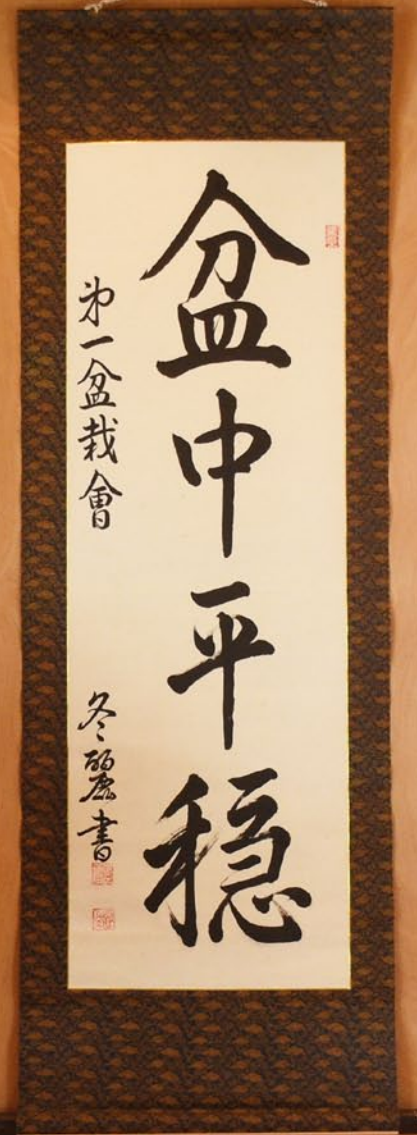 盆中平穏
第一盆栽會
冬麗書